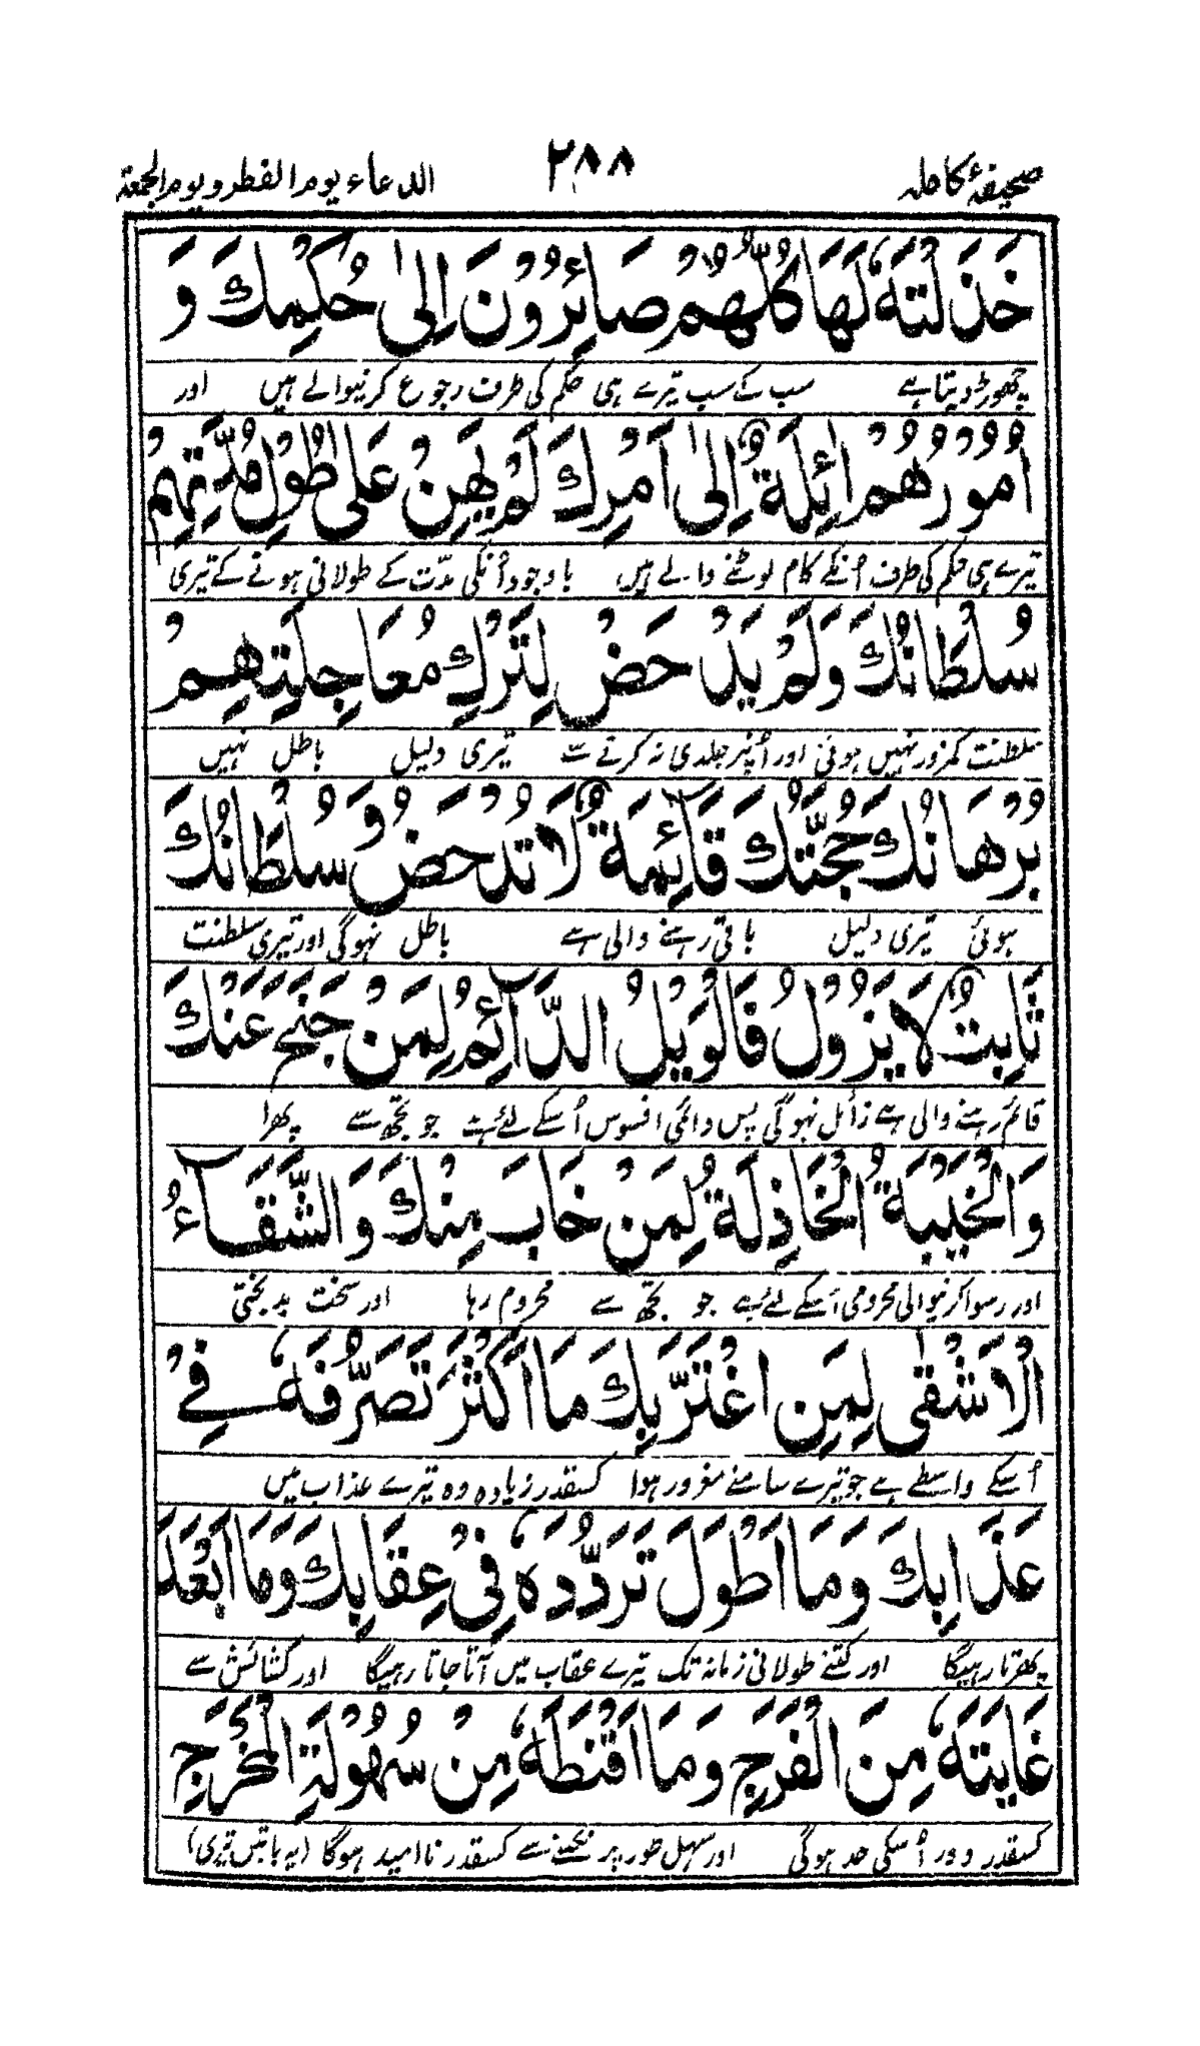 صحیفۂ کاملہ ۲۸۸ الدعاء یوم الفطر و یوم الجمعة
خَذَلْتَهٗ لَهَا كُلُّهُمْ صَائِرُوْنَ اِلٰى حُكْمِكَ وَ
چھوڑ دیتا ہے سب کے سب تیرے ہی حکم کی طرف رجوع کرنیوالے ہیں اور
اُمُوْرُهُمْ اٰئِلَةٌ اِلٰى اَمْرِكَ لَمْ يَهِنْ عَلٰى طُوْلِ مُدَّتِهِمْ
تیرے ہی حکم کی طرف اُنکے کام لوٹنے والے ہیں باوجود اُنکی مدّت کے طولانی ہونے کے تیری
سُلْطَانُكَ وَلَمْ يَدْحَضْ لِتَرْكِ مُعَاجَلَتِهِمْ
سلطنت کمزور نہیں ہوئی اور اُنپر جلدی نہ کرنے سے تیری دلیل باطل نہیں
بُرْهَانُكَ حُجَّتُكَ قَائِمَةٌ لَا تُدْحَضُ وَسُلْطَانُكَ
ہوئی تیری دلیل باقی رہنے والی ہے باطل نہوگی اور تیری سلطنت
ثَابِتٌ لَا يَزُوْلُ فَالْوَيْلُ الدَّآئِمُ لِمَنْ جَنَحَ عَنْكَ
قائم رہنے والی ہے زائل نہوگی پس دائمی افسوس اُسکے لئے ہے جو تجھ سے پھرا
وَالْخَيْبَةُ الْخَاذِلَةُ لِمَنْ خَابَ مِنْكَ وَالشَّقَآءُ
اور رسوا کرنیوالی محرومی اُسکے لئے ہے جو تجھ سے محروم رہا اور سخت بدبختی
الْاَشْقٰى لِمَنِ اغْتَرَّ بِكَ مَا اَكْثَرَ تَصَرُّفَهٗ فِيْ
اُسکے واسطے ہے جو تیرے سامنے مغرور ہوا کسقدر زیادہ وہ تیرے عذاب میں
عَذَابِكَ وَمَا اَطْوَلَ تَرَدُّدَهٗ فِيْ عِقَابِكَ وَمَا اَبْعَدَ
پھرتا رہیگا اور کتنے طولانی زمانہ تک تیرے عقاب میں آتا جاتا رہیگا اور کشائش سے
غَايَتَهٗ مِنَ الْفَرَجِ وَمَا اَقْنَطَهٗ مِنْ سُهُوْلَةِ الْمَخْرَجِ
کسقدر دور اُسکی حد ہوگی اور سہل طور پر نکلنے سے کسقدر ناامید ہوگا (یہ باتیں تیری)